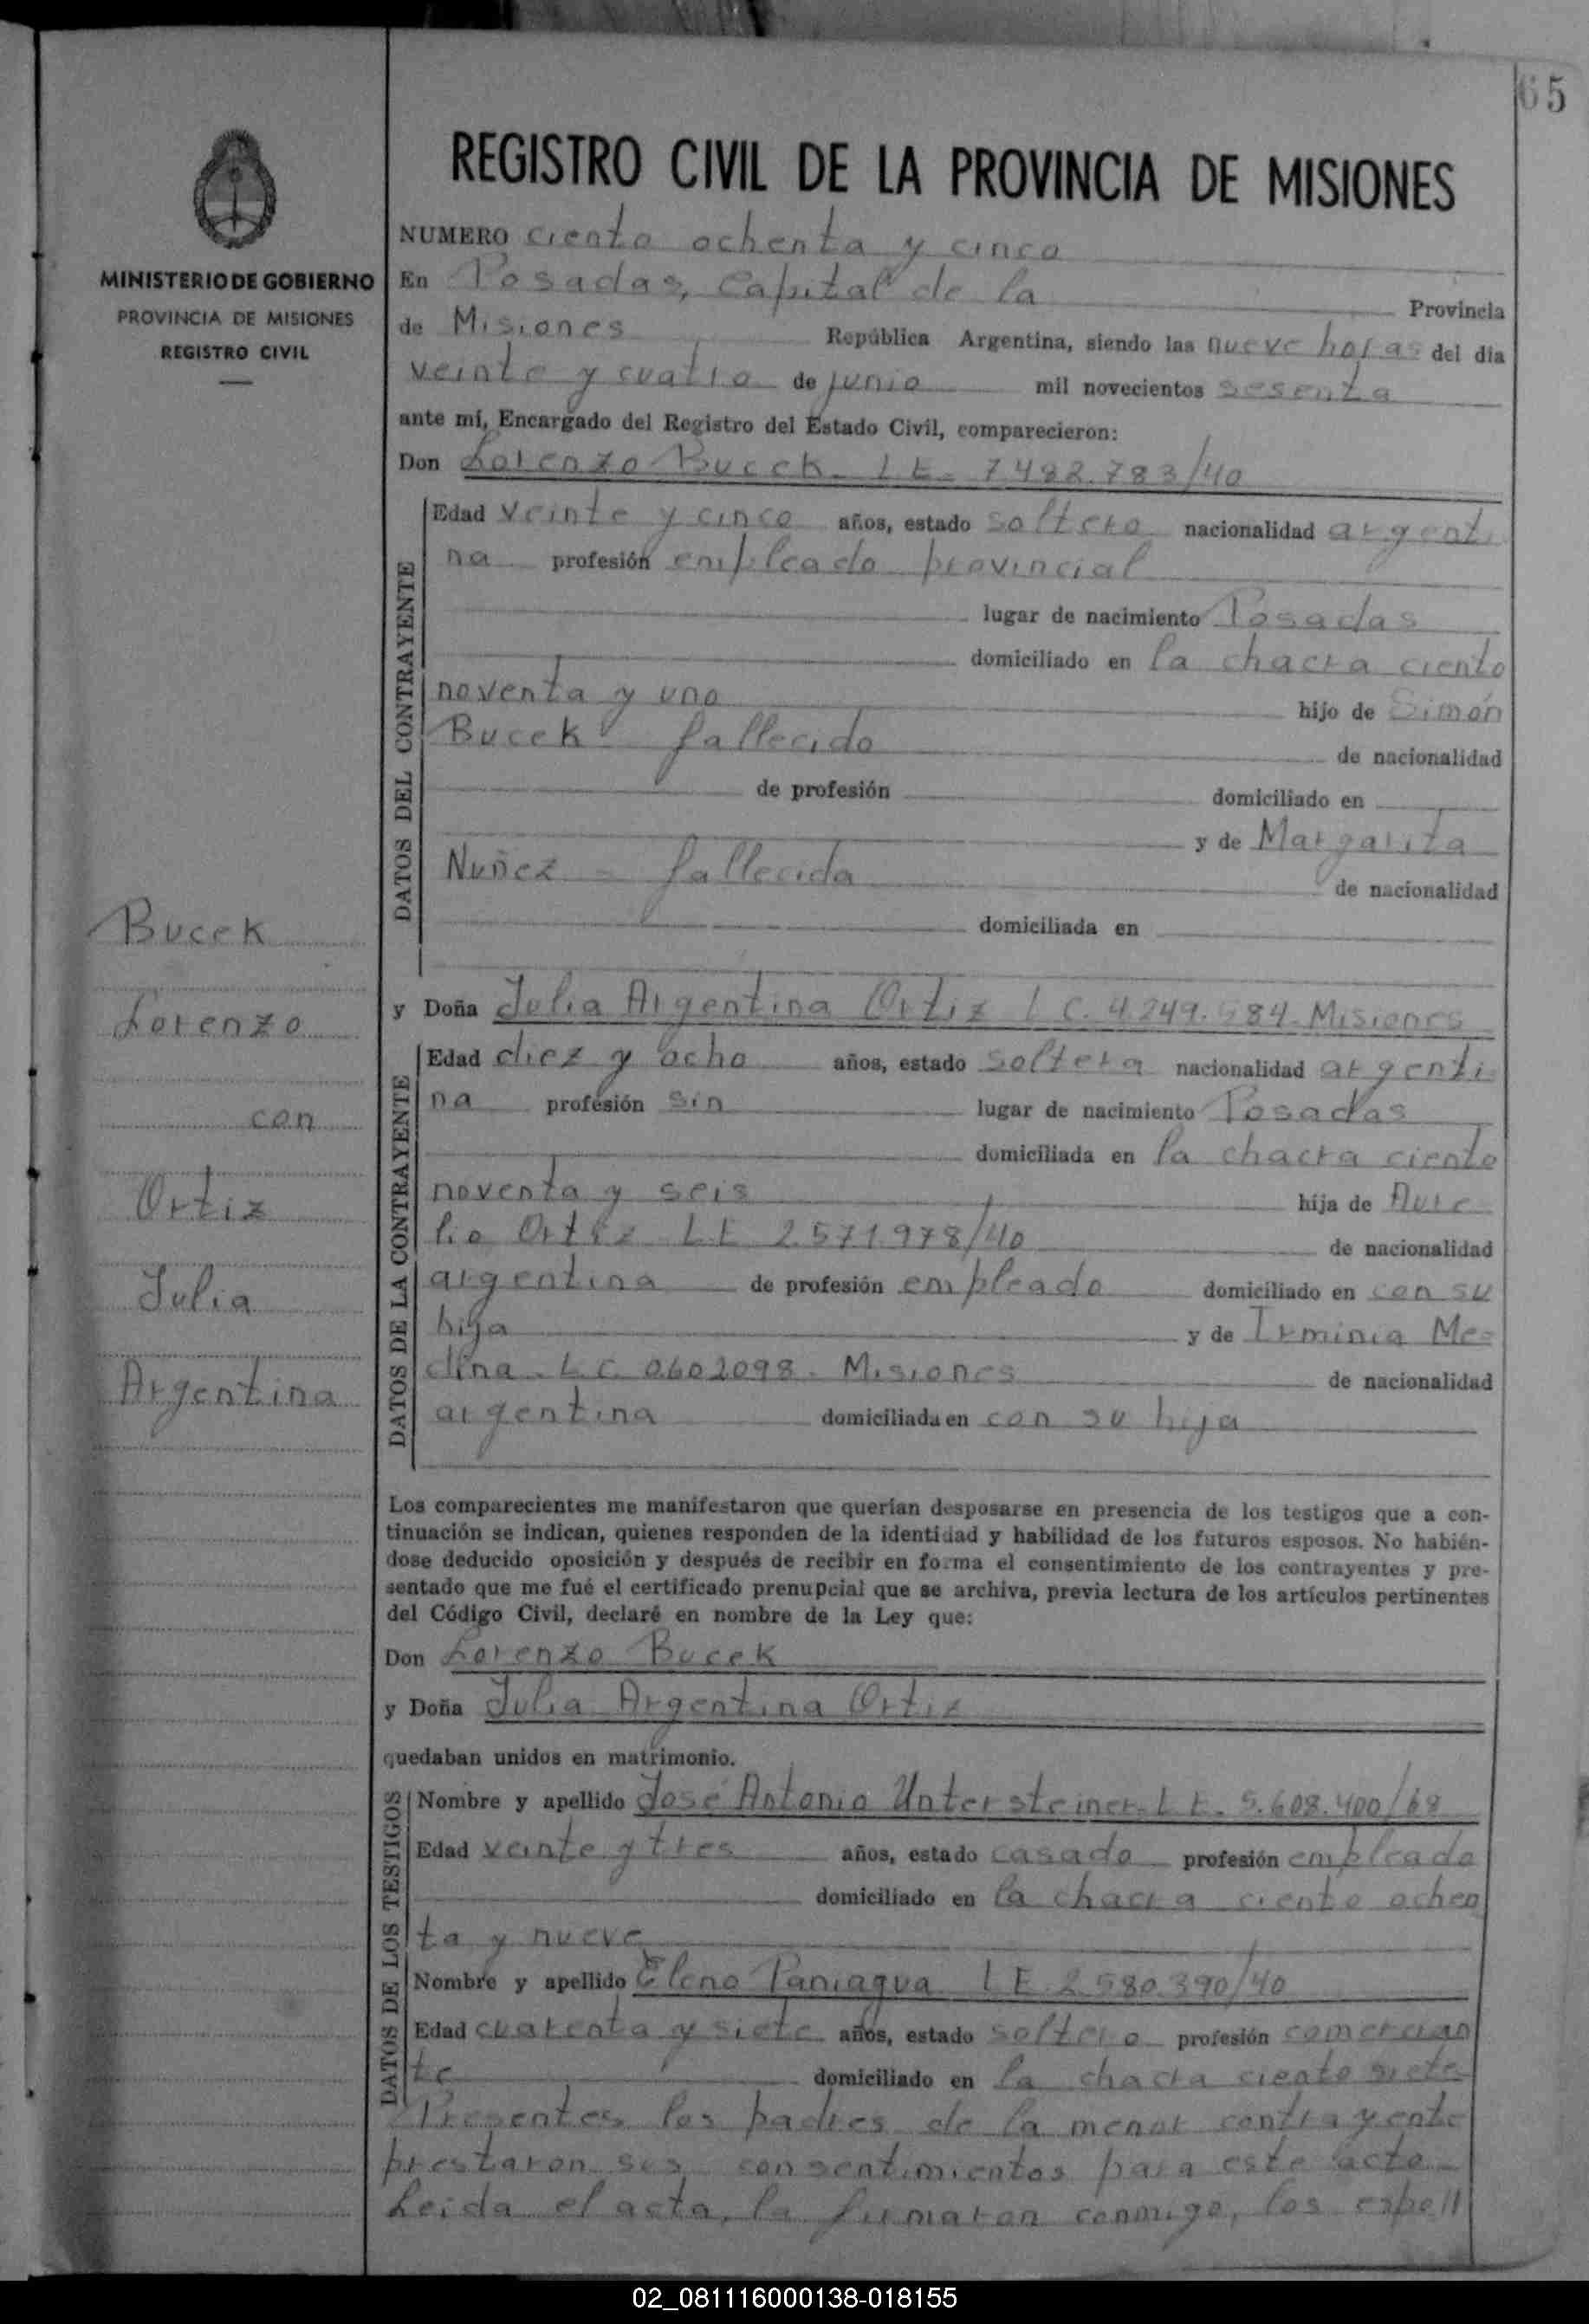 65
REGISTRO CIVIL DE LA PROVINCIA DE MISIONES
MINISTERIO DE GOBIERNO
PROVINCIA DE MISIONES
REGISTRO CIVIL
NUMERO ciento ochenta y cinco
En Posadas, Capital de la Provincia
de Misiones República Argentina, siendo las nueve horas del dia
veinte y cuatro de junio mil novecientos sesenta
ante mí, Encargado del Registro del Estado Civil, comparecieron:
Don Lorenzo Bucek - L E - 7.482.783/40
DATOS DEL CONTRAYENTE
Edad veinte y cinco años, estado soltero nacionalidad argenti
na profesión empleado provincial
lugar de nacimiento Posadas
domiciliado en la chacra ciento
noventa y uno hijo de Simón
Bucek - fallecido de nacionalidad
de profesión domiciliado en
y de Margarita
Nuñez - fallecida de nacionalidad
domiciliada en
Bucek
Lorenzo
con
Ortiz
Julia
Argentina
y Doña Julia Argentina Ortiz L C. 4.249.584 - Misiones
DATOS DE LA CONTRAYENTE
Edad diez y ocho años, estado soltera nacionalidad argenti
na profesión sin lugar de nacimiento Posadas
domiciliada en la chacra ciento
noventa y seis hija de Aure
lio Ortiz L E 2.571.978/40 de nacionalidad
argentina de profesión empleado domiciliado en con su
hija y de Irminia Me-
dina - L C 0602098 - Misiones de nacionalidad
argentina domiciliada en con su hija
Los comparecientes me manifestaron que querían desposarse en presencia de los testigos que a con-
tinuación se indican, quienes responden de la identidad y habilidad de los futuros esposos. No habién-
dose deducido oposición y después de recibir en forma el consentimiento de los contrayentes y pre-
sentado que me fué el certificado prenupcial que se archiva, previa lectura de los artículos pertinentes
del Código Civil, declaré en nombre de la Ley que:
Don Lorenzo Bucek
y Doña Julia Argentina Ortiz
quedaban unidos en matrimonio.
DATOS DE LOS TESTIGOS
Nombre y apellido José Antonio Untersteiner - L E - 5.608.400/68
Edad veinte y tres años, estado casado profesión empleado
domiciliado en la chacra ciento ochen
ta y nueve
Nombre y apellido Eleno Paniagua L E 2.580.390/40
Edad cuarenta y siete años, estado soltero profesión comercian
te domiciliado en la chacra ciento siete
Presentes los padres de la menor contrayente
prestaron sus consentimientos para este acto -
Leida el acta, la firmaron conmigo, los
02_081116000138-018155